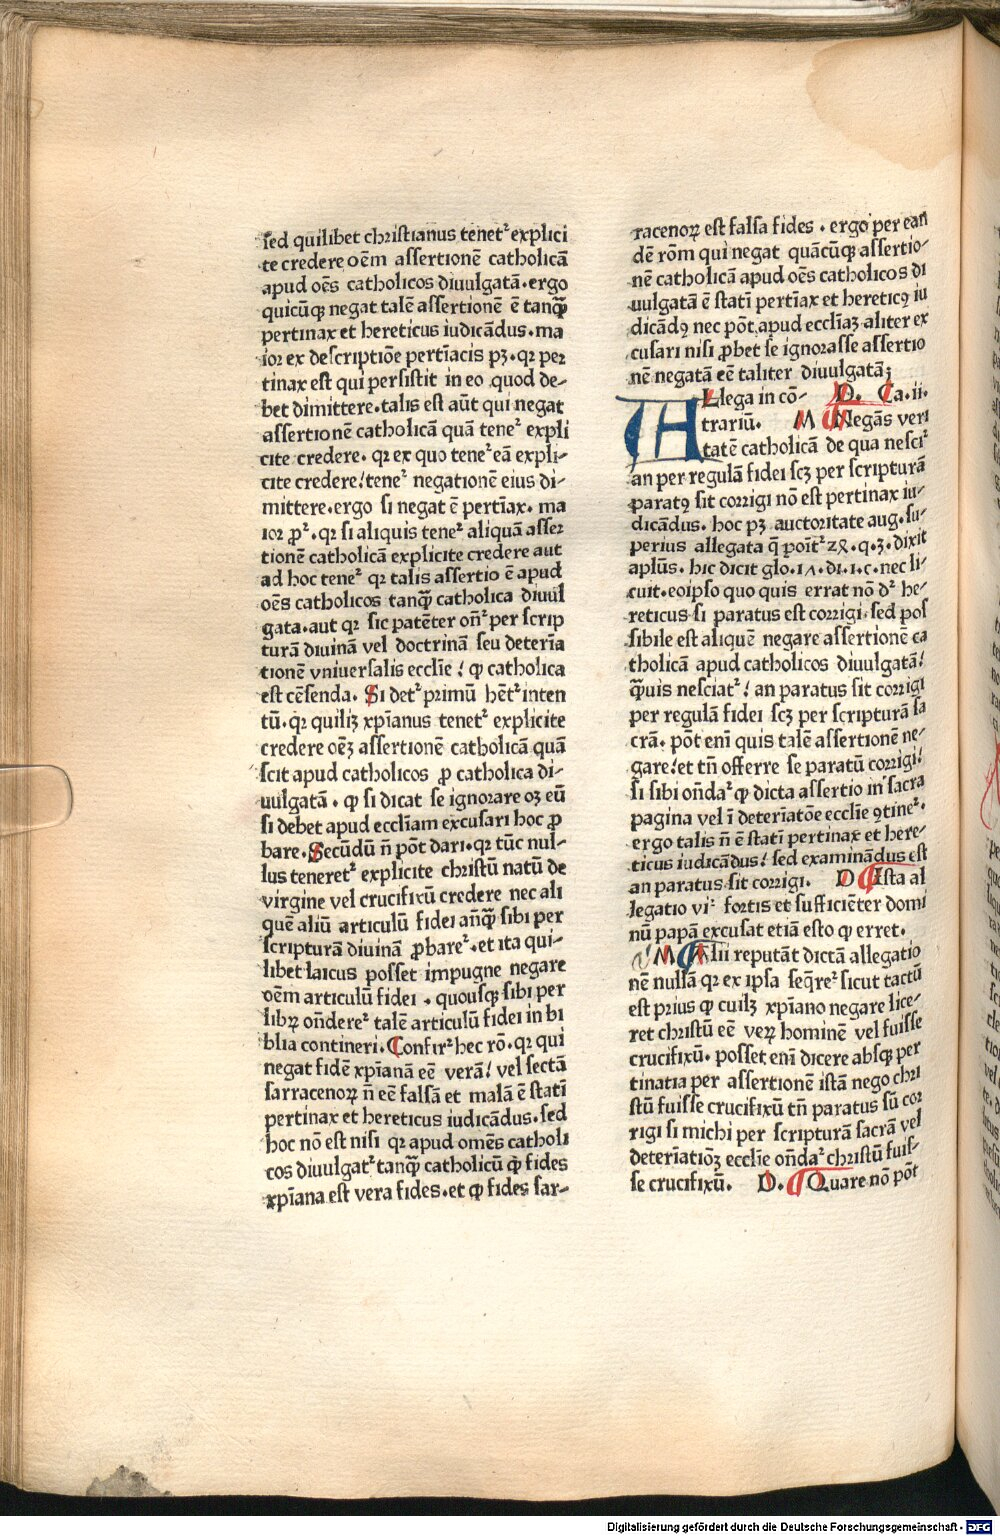 sed quilibet christianus tenetᷣ explici
te credere oēm assertionē catholicā
apud oēs catholicos diuulgatā. ergo
quicūqꝫ negat talē assertionē ē tanqͣꝫ
pertinax et hereticus iudicādus. ma
ior ex descriptiōe pertīacis pꝫ. qꝛ per
tinax est qui persistit in eo quod de-
bet dimittere. talis est aūt qui negat
assertionē catholicā quā teneᷣ expli
cite credere. qꝛ ex quo teneᷣ eā expli-
cite credere/ teneᷣ negationē eius di-
mittere. ergo si negat ē pertīax. ma
ior ꝓᷣ. qꝛ si aliquis teneᷣ aliquā asser
tionē catholicā explicite credere aut
ad hoc teneᷣ qꝛ talis assertio ē apud
oēs catholicos tanqͣꝫ catholica diuul
gata. aut qꝛ sic patēter on̄ᷣ per scrip
turā diuinā vel doctrinā seu deterīa
tionē vniuersalis ecclīe / ꝙ catholica
est cēsenda. Si detᷣ primū hētᷣ inten
tū. qꝛ quilꝫ xp̄ianus tenetᷣ explicite
credere oēꝫ assertionē catholicā quā
scit apud catholicos ꝓ catholica di-
uulgatā. ꝙ si dicat se ignorare oꝫ eū
si debet apud eccl̄iam excusari hoc ꝓ
bare. Secūdū n̄ pōt dari. qꝛ tūc nul-
lus teneretᷣ explicite christū natū de
virgine vel crucifixū credere nec ali
quē aliū articulū fidei an̄qͣꝫ sibi per
scripturā diuinā ꝓbareᷣ. et ita qui-
libet laicus posset impugne negare
oēm articulū fidei. quousqꝫ sibi per
libꝝ on̄dereᷣ talē articulū fidei in bi
blia contineri. Confirᷣ hec rō. qꝛ qui
negat fidē xp̄ianā eē verā/ vel sectā
sarracenoꝝ n̄ eē falsā et malā ē statī
pertinax et hereticus iudicādus. sed
hoc nō est nisi qꝛ apud omēs catholi
cos diuulgatᷣ tanqͣꝫ catholicū ꝙ fides
xp̄iana est vera fides. et ꝙ fides sar-
racenoꝝ est falsa fides. ergo per ean
dē rōm qui negat quācūqꝫ assertio-
nē catholicā apud oēs catholicos di
uulgatā ē statī pertīax et hereticꝰ iu
dicādꝰ nec pōt apud eccl̄iaꝫ aliter ex
cusari nisi ꝓbet se ignorasse assertio
nē negatā eē taliter diuulgatā;
ALlega in cō- D. Ca. ii.
trariū. M Negās veri
tatē catholicā de qua nesciᷣ
an per regulā fidei scꝫ per scripturā
paratꝰ sit corrigi nō est pertinax iu-
dicādus. hoc pꝫ auctoritate aug. su-
perius allegata q̄ poītᷣ 24. q. 3. dixit
apl̄us. hic dicit glo. 17. di. 1. c. nec li-
cuit. eoipso quo quis errat nō dᷣ he-
reticus si paratus est corrigi. sed pos
sibile est aliquē negare assertionē ca
tholicā apud catholicos diuulgatā/
qͣꝫuis nesciatᷣ / an paratus sit corrigi
per regulā fidei scꝫ per scripturā sa
crā. pōt enī quis talē assertionē ne-
gare/ et tn̄ offerre se paratū corrigi/
si sibi on̄daᷣ ꝙ dicta assertio in sacra
pagina vel ī deteriatōe ecclīe ꝯtineᷣ.
ergo talis n̄ ē statī pertinax et here-
ticus iudicādus/ sed examinādus est
an paratus sit corrigi. D Ista al
legatio viᷣ fortis et sufficiēter domi
nū papā excusat etiā esto ꝙ erret.
M. Alii reputāt dictā allegatio
nē nullā qꝛ ex ipsa seq̄reᷣ sicut tactū
est prius ꝙ cuilꝫ xp̄iano negare lice-
ret christū eē veꝝ hominē vel fuisse
crucifixū. posset enī dicere absqꝫ per
tinatia per assertionē istā nego chri
stū fuisse crucifixū tn̄ paratus sū cor
rigi si michi per scripturā sacrā vel
deterīatiōꝫ ecclīe on̄daᷣ christū fuis-
se crucifixū. D. Quare nō pōt
Digitalisierung gefördert durch die Deutsche Forschungsgemeinschaft - DFG